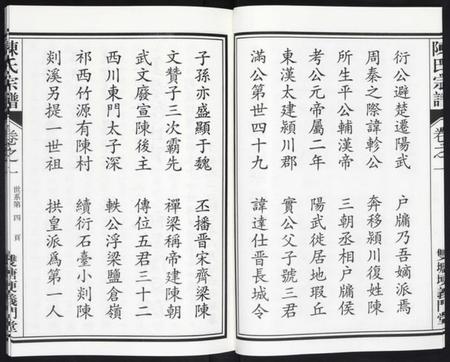 陳氏宗譜 卷之一 義門堂
衍公避楚遷陽武 戶牖乃吾嫡派焉
周秦之際諱軫公 奔移潁川復姓陳
所生平公輔漢帝 三朝丞相戶牖侯
考公元帝屬二年 陽武徙居地瑕丘
東漢太建潁川郡 實公父子號三君
滿公第世四十九 諱達仕晋長城令
子孫亦盛顯于魏 丕播晋宋齊梁陳
文贊子三次霸先 禪梁稱帝建陳朝
武文廢宣陳後主 傳位五君三十二
西川東門太子深 軼公浮梁鹽倉嶺
祁西竹源有陳村 續衍石臺小剡陳
剡溪另提一世祖 拱皇派爲第一人
陳氏宗譜 卷之一 世系第四頁 雙塘埂義門堂